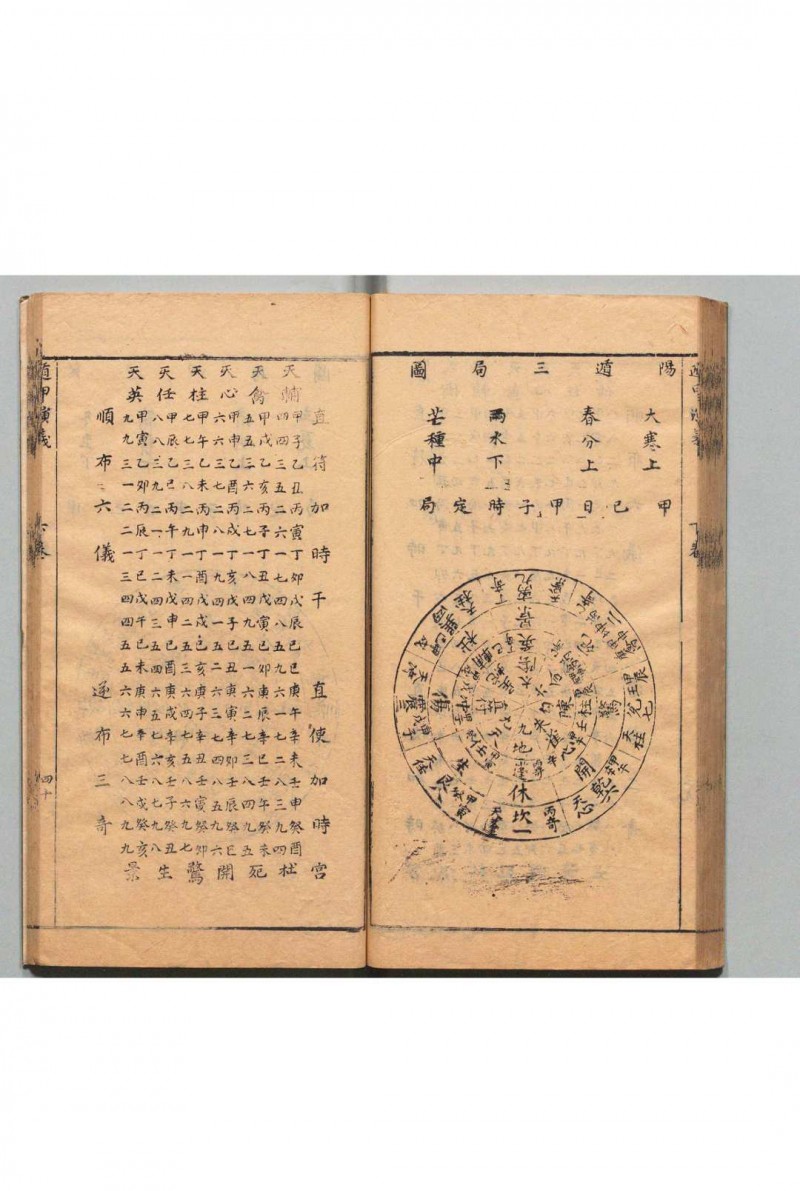 陽遁三局圖
大寒上
春分上
雨水下
芒種中
甲已日甲子時定局
坎一
休
九地
丙奇
乾六
天心
開
兌七
天柱
驚
景
杜
傷
生
遁甲演義
下卷
四十
直符加時干 直使加時宮
天輔 甲子乙丑丙寅丁卯戊辰己巳庚午辛未壬申癸酉 杜
四四三五二六一七四八五九六一七二八三九四
天禽 甲戌乙亥丙子丁丑戊寅己卯庚辰辛巳壬午癸未 死
五五三六二七一八四九五一六二七三八四九五
天心 甲申乙酉丙戌丁亥戊子己丑庚寅辛卯壬辰癸巳 開
六六三七二八一九四一五二六三七四八五九六
天柱 甲午乙未丙申丁酉戊戌己亥庚子辛丑壬寅癸卯 驚
七七三八二九一一四二五三六四七五八六九七
天任 甲辰乙巳丙午丁未戊申己酉庚戌辛亥壬子癸丑 生
八八三九二一一二四三五四六五七六八七九八
天英 甲寅乙卯丙辰丁巳戊午己未庚申辛酉壬戌癸亥 景
九九三一二二一三四四五五六六七七八八九九
順布六儀 逆布三奇